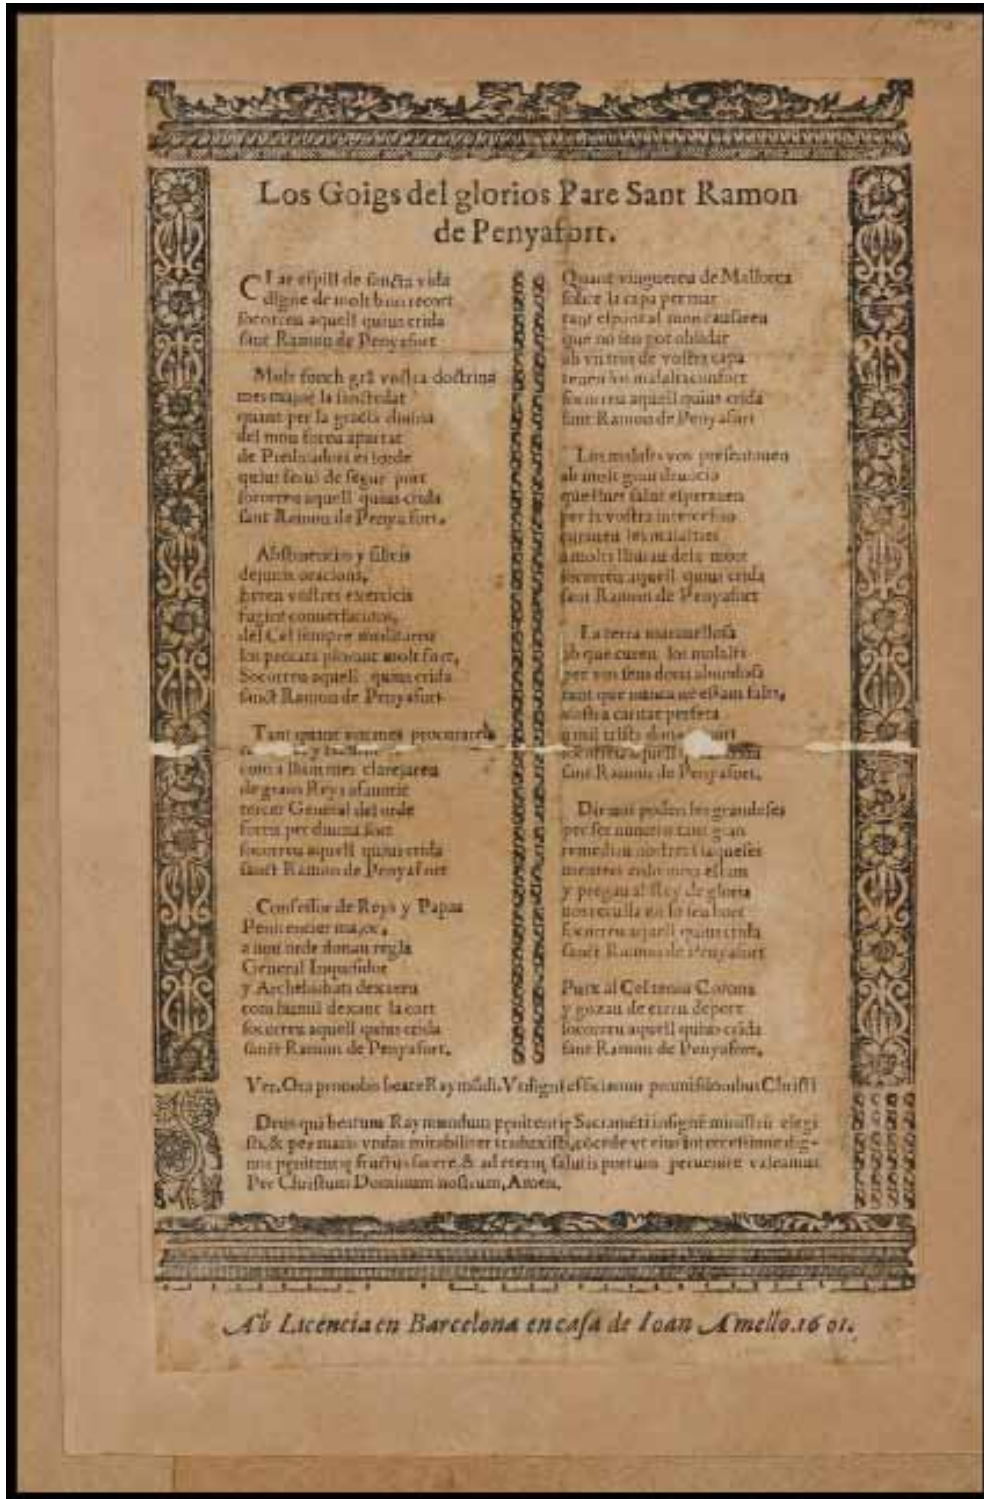 Los Goigs del glorios Pare Sant Ramon
de Penyafort.
CLar espill de sancta vida
digne de molt bon recort
socorreu aquell quius crida
sant Ramon de Penyafort
Molt fonch grã vostra doctrina
mes major la sanctedat
quant per la gracia divina
del mon foreu apartat
de Predicadors
quius de segur port
socorreu aquell quius crida
sant Ramon de Penya fort.
Abstinencies y silicis
dejunis oracions,
eren vostres exercicis
fugint
del Cel sempre
los peccats plorant molt fort,
Socorreu aquell quius crida
sanct Ramon de Penyafort
Tant quant vos mes procurareu
com a llum mes clarejareu
de grans Reys
tercer General del orde
foreu per divina sort
socorreu aquell quius crida
sanct Ramon de Penyafort
Confessor de Reys y Papas
Penitencier major,
a nou orde donau regla
General Inquisidor
y Archebisbats dexareu
com humil dexant la cort
socorreu aquell quius crida
sanct Ramon de Penyafort.
Quant vinguereu de Mallorca
sobre la capa per mar
tant espontal mon causareu
que no seu pot oblidar
ab vn tros de vostra capa
tenen los malalts confort
socorreu aquell quius crida
sant Ramon de Penyafort
Los malalts vos presentauen
ab molt gran deuocio
salut esperauen
per la vostra intercessio
curaueu les malalties
a molts lliurau dela mort
socorreu aquell quius crida
sant Ramon de Penyafort
La terra marauellosa
ab que curen los malalts
per vos
tant que nunca ne estam falts,
vostra caritat perfeta
socorreu aquell
sant Ramon de Penyafort.
Dir nos poden les grandeses
per ser numero tant gran
remediau nostres flaqueses
mentres estam
y pregau al Rey de gloria
nos reculla en lo seu hort
socorreu aquell quius crida
sanct Ramon de Penyafort
Puix al Cel teniu Corona
y gozau de etern deport
socorreu aquell quius crida
sant Ramon de Penyafort.
Ver. Ora pro nobis beate Raymũdi. Vt digni efficiamur promissionibus Christi
Deus qui beatum Raymundum penitentię Sacramẽti insignẽ ministrũ elegi
sti, & per maris vndas mirabiliter traduxisti, cõcede vt eius intercessione dig-
nos penitentię fructus facere, & ad eternę salutis portum peruenire valeamus
Per Christum Dominum nostrum, Amen.
Ab Licencia en Barcelona en casa de Ioan Amello. 1601.